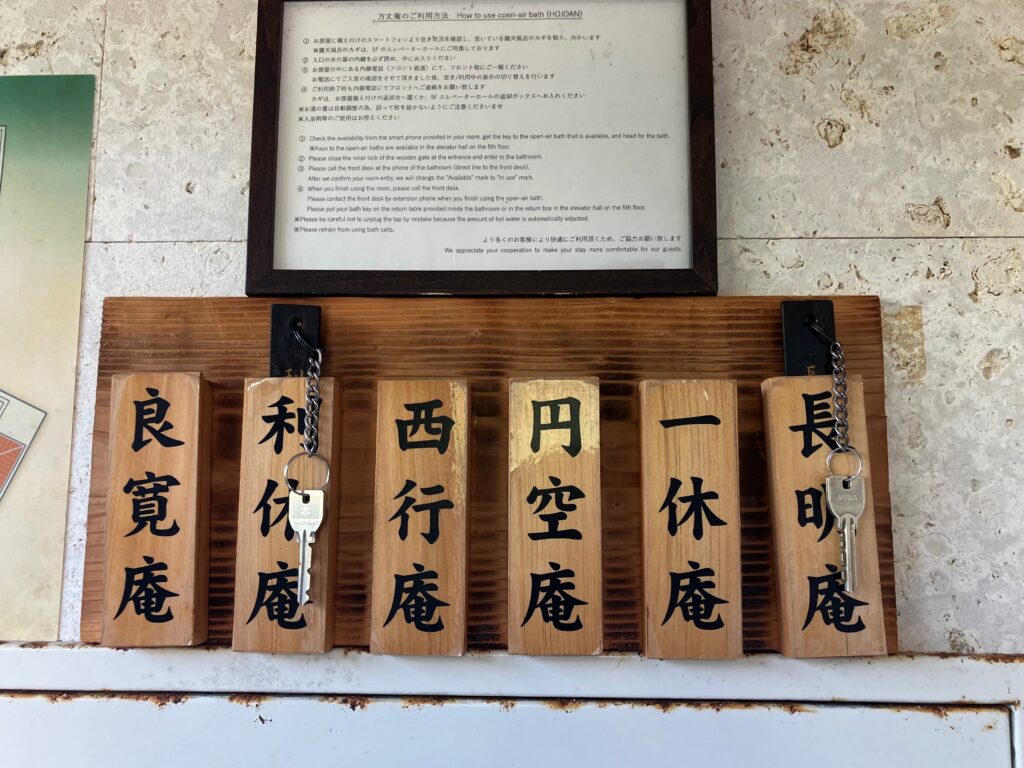 方丈庵のご利用方法　How to use open-air bath (HOJOAN)
① お部屋に備え付けのスマートフォンより空き状況を確認し、空いている露天風呂のカギを取り、向かいます
※露天風呂のカギは、5F のエレベーターホールにご用意しております
② 入口の木の扉の内鍵を必ず閉め、中にお入りください
③ お部屋の中にある内線電話（フロント直通）にて、フロント宛にご一報ください
お電話にてご入室の確認をさせて頂きました後、空き/利用中の表示の切り替えを行います
④ ご利用終了時も内線電話にてフロントへご連絡をお願い致します
カギは、お部屋備え付けの返却台へ置くか、5F エレベーターホールの返却ボックスへお入れください
※お湯の量は自動調整の為、誤って栓を抜かないようにご注意くださいませ
※入浴剤等のご使用はお控えください
① Check the availability from the smart phone provided in your room, get the key to the open-air bath that is available, and head for the bath.
※Keys to the open-air baths are available in the elevator hall on the 5th floor.
② Please close the inner lock of the wooden gate at the entrance and enter to the bathroom.
③ Please call the front desk at the phone of the bathroom (direct line to the front desk).
After we confirm your room entry, we will change the "Available" mark to "In use" mark.
④ When you finish using the room, please call the front desk.
Please contact the front desk by extension phone when you finish using the open-air bath.
Please put your bath key on the return table provided inside the bathroom or in the return box in the elevator hall on the 5th floor.
※Please be careful not to unplug the tap by mistake because the amount of hot water is automatically adjusted.
※Please refrain from using bath salts.
より多くのお客様により快適にご利用頂くため、ご協力お願い致します
We appreciate your cooperation to make your stay more comfortable for our guests.
良寛庵
利休庵
西行庵
円空庵
一休庵
長明庵
MIWA